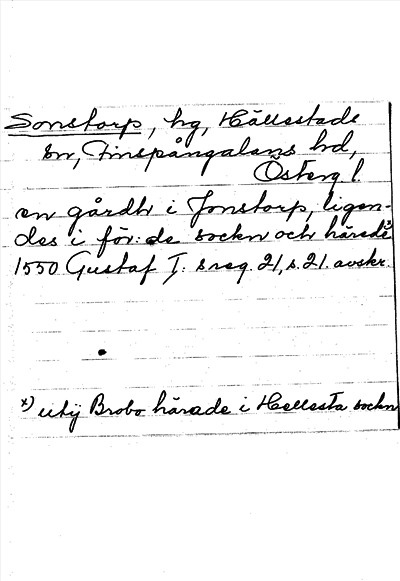 Sonstorp, hg, Hällestads
sn, Finspångalans hd,
Österg. l.
en gårdh i Jonstorp, ligen-
des i för:de sockn och härade x)
1550 Gustaf I: s reg. 21, s. 21. avskr.
x) utij Brobo härade i Hellesta sockn